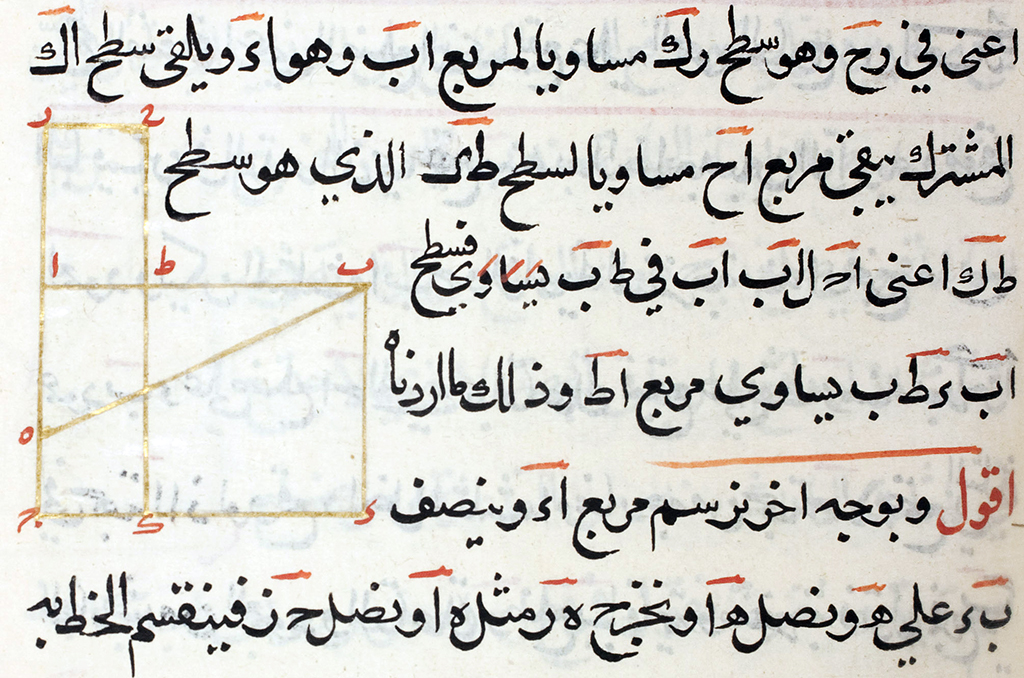 اعنى في رح وهو سطح رك مساويا لمربع اب وهو اء ويلقى سطح اك
المشترك يبقى مربع اح مساويا لسطح طك الذي هو سطح
طك اعنى لاب اب في ط ب يساوي فسطح
اب ء ط ب يساوي مربع اط وذلك ما اردناه
اقول وبوجه اخر نرسم مربع اء وينصف
ب ء علي ه ونصل ه ا ونخرج ه ر مثل ه ا ونصل ح ز فينقسم الخط به
ر ح
ا ط ب
ه
ج ك ء